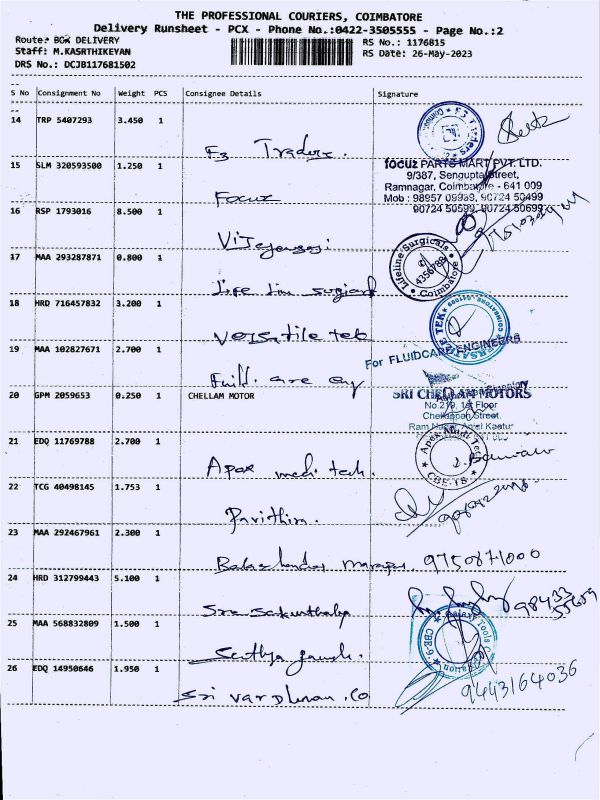 THE PROFESSIONAL COURIERS, COIMBATORE
Delivery Runsheet - PCX - Phone No.:0422-3505555 - Page No.:2
Route: BOX DELIVERY
RS No.: 1176815
Staff: M.KASRTHIKEYAN
RS Date: 26-May-2023
DRS No.: DCJB117681502
S No Consignment No Weight PCS Consignee Details Signature
14 TRP 5407293 3.450 1
F3 Traders.
15 SLM 320593500 1.250 1
focuz PARTS MART PVT. LTD.
9/387, Sengupta Street,
Ramnagar, Coimbatore - 641 009
Mob : 98957 09989, 90724 50499
90724 50599, 90724 50699
Focuz
16 RSP 1793016 8.500 1
17 MAA 293287871 0.800 1
Lifeline Surgicals
4356788
Coimbatore
18 HRD 716457832 3.200 1
Versatile tek
19 MAA 102827671 2.700 1
For FLUIDCARE ENGINEERS
20 GPM 2059653 0.250 1 CHELLAM MOTOR
SRI CHELLAM MOTORS
No.219, 1st Floor
Chellappan Street.
21 EDQ 11769788 2.700 1
Apex Medi Tech
CBE-18
Apex medi tech.
22 TCG 40498145 1.753 1
Pavithira.
23 MAA 292467961 2.300 1
9750871000
24 HRD 312799443 5.100 1
Sre Sakunthala
25 MAA 568832809 1.500 1
26 EDQ 14950646 1.950 1
9443164036
Sri Vardhman .Co